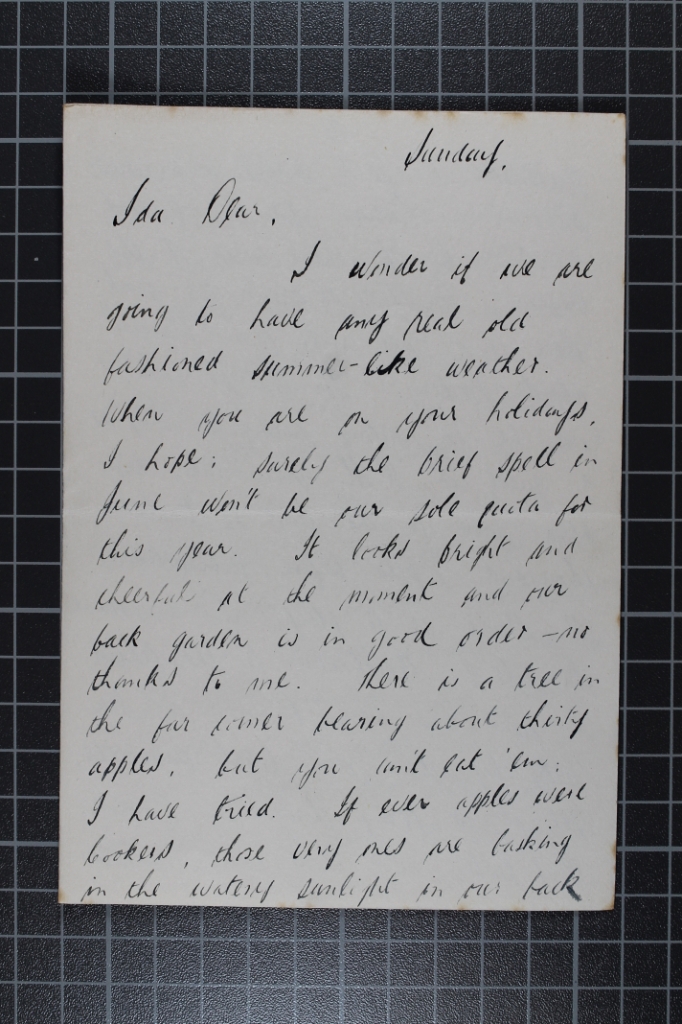 Sunday.
Ida Dear,
I wonder if we are
going to have any real old
fashioned summer-like weather.
When you are on your holidays,
I hope: surely the brief spell in
June won't be our sole quota for
this year. It looks bright and
cheerful at the moment and our
back garden is in good order - no
thanks to me. There is a tree in
the far corner bearing about thirty
apples, but you can't eat 'em:
I have tried. If ever apples were
cookers, those very ones are basking
in the watery sunlight in our back